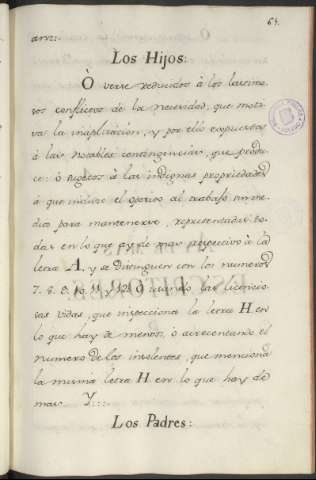 64.
Los Hijos:
Ò verse reducidos à los lastimo-
sos conflictos de la necesidad, que moti-
va la inaplicacion, y por ello expuestos
à las notables contingencias, que produ-
ce: ò sugetos à las indignas propriedades
à que induce el oposito al trabajo sin me-
dios para mantenerse, representadas to-
das en lo que ay de mas perspectivo à la
letra A, y se distinguen con los numeros
7. 8. 9. 10. 11. y 12. O usando las licencio-
sas vidas, que inspecciona la letra H. en
lo que hay de menos, ò acrecentando el
numero de los insolentes, que menciona
la misma letra H. en lo que hay de
mas. Y.::
Los Padres: